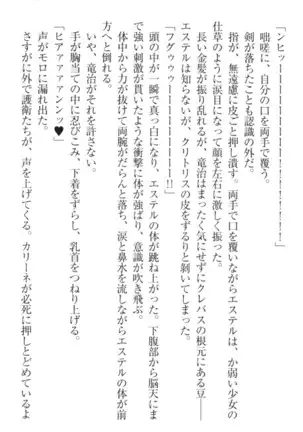 「ンヒッーーーーーーーーーーーー！」
咄嗟に、自分の口を両手で覆う。
剣が落ちたことも認識の外だ。
指が、無遠慮に皮ごと押し潰す。両手で口を覆いながらエステルは、か弱い少女の
仕草のように涙目になって顔を左右に激しく振った。
長い金髪が振り乱れるが、竜治はまったく気にせずにクレバスの根元にある豆――
エステルは知らないが、クリトリスの皮をずるりと剝いてしまった。
「フグゥゥゥーーーーーーーーー!!」
頭の中が一瞬で真っ白になり、エステルの体が跳ね上がった。下腹部から脳天にま
で強い刺激が貫いたような衝撃に体が強ばり、意識が吹き飛ぶ。
体中から力が抜けて両腕がだらんと落ち、涙と鼻水を流しながらエステルの体が前
方へと倒れる。
いや、竜治がそれを許さない。
手が胸当ての中に忍びこみ、下着をずらし、乳首をつねり上げる。
「ヒアァァァァンンッ♥」
声がモロに漏れ出た。
さすがに外で護衛たちが、声を上げてくる。カリーネが必死に押しとどめているよ